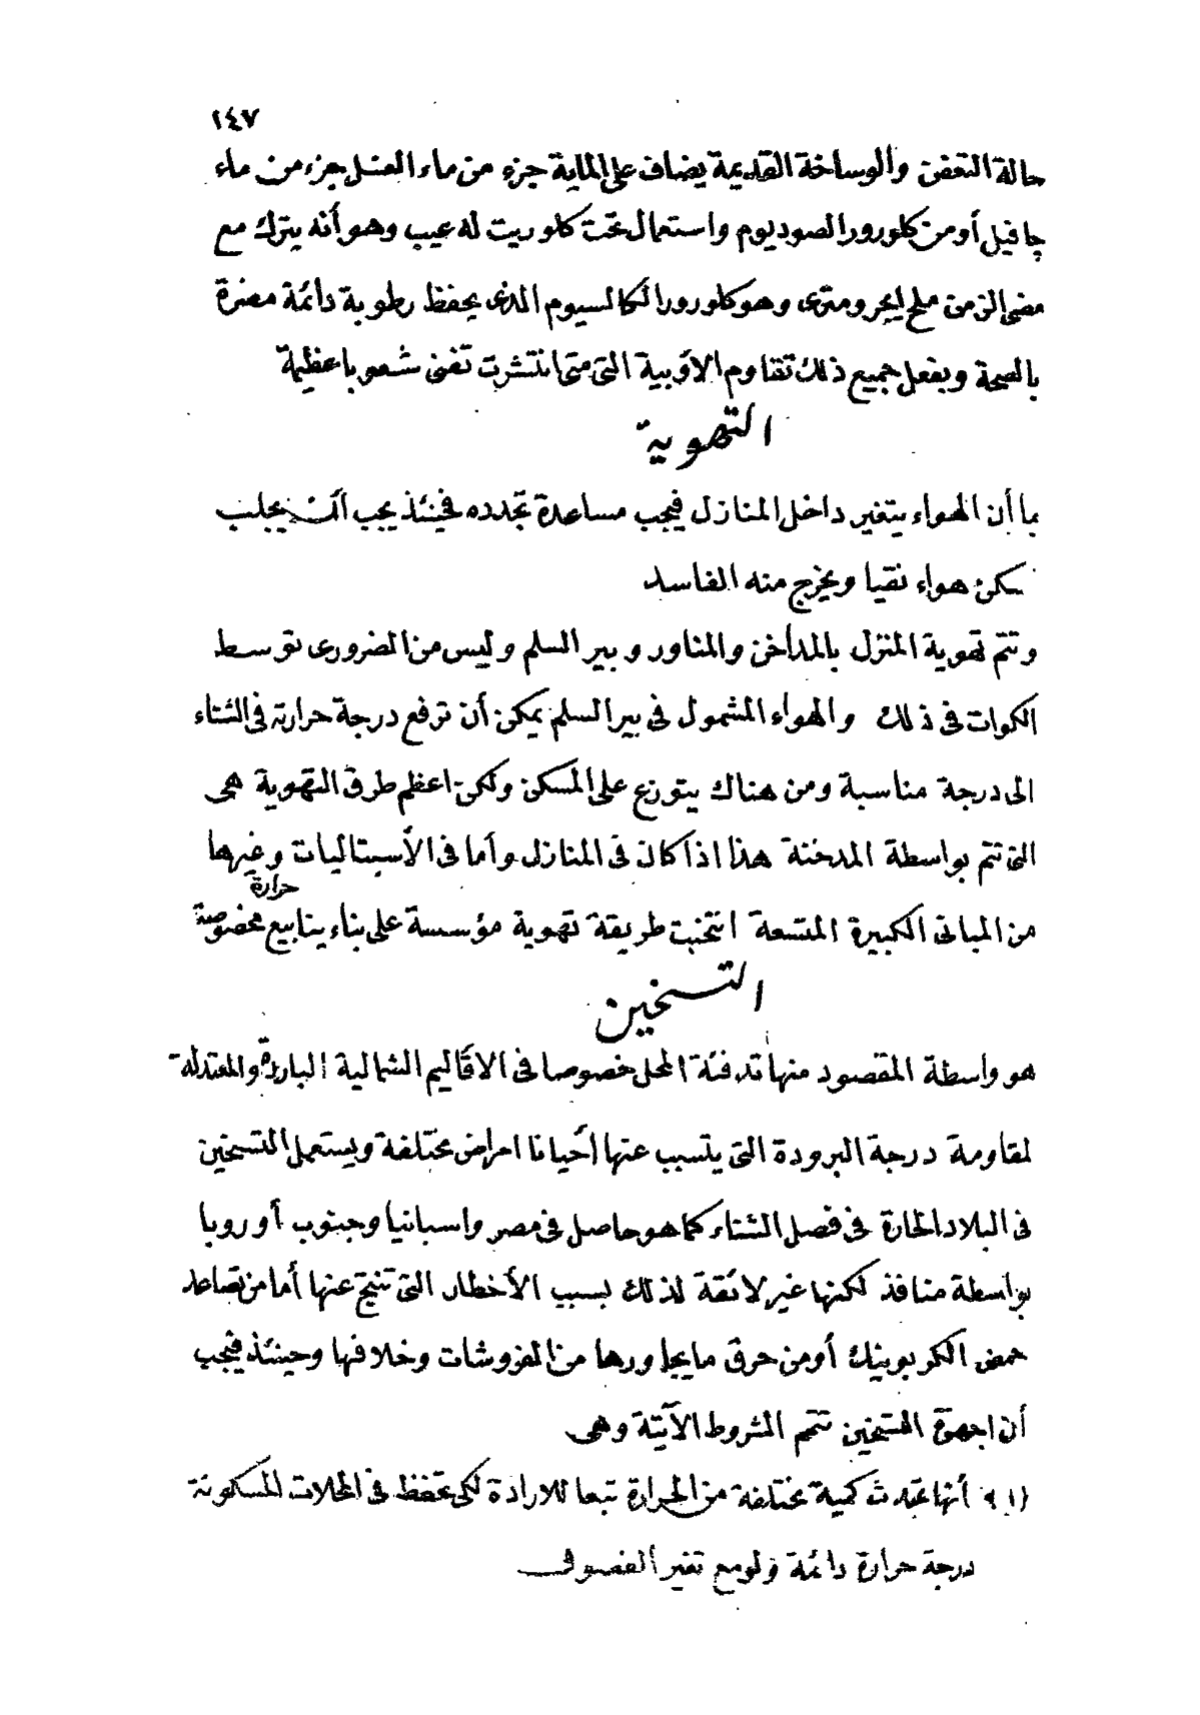 ١٤٧
حالة التعفن والوساخة القديمة يضاف على المايه جزء من ماء الغسل جزء من ماء
جافيل أو من كلورور الصوديوم واستعمال تحت كلوريت له عيب وهو أنه يترك مع
مضى الزمن ملح ايجرومترى وهو كلورور الكالسيوم الذى يحفظ رطوبة دائمة مضرة
بالصحة وبفعل جميع ذلك تقاوم الأوبية التى متى انتشرت تفنى شعوبا عظيمة
التهوية
بما أن الهواء يتغير داخل المنازل فيجب مساعدة تجدده فحينئذ يجب أن يجلب
سكن هواء نقيا ويخرج منه الفاسد
وتتم تهوية المنزل بالمداخن والمناور وبير السلم وليس من الضرورى توسط
الكوات فى ذلك والهواء المشمول فى بير السلم يمكن أن ترفع درجة حرارته فى الشتاء
الى درجة مناسبة ومن هناك يتوزع على المسكن ولكن اعظم طرق التهوية هى
التى تتم بواسطة المدخنة هذا اذا كان فى المنازل وأما فى الأسبتاليات وغيرها
من المبانى الكبيرة المتسعة انتخبت طريقة تهوية مؤسسة على بناء ينابيع حرارة مخصوصة
التسخين
هو واسطة المقصود منها تدفئة المحل خصوصا فى الاقاليم الشمالية الباردة والمعتدلة
لمقاومة درجة البرودة التى يتسبب عنها أحيانا امراض مختلفة ويستعمل التسخين
فى البلاد الحارة فى فصل الشتاء كما هو حاصل فى مصر واسبانيا وجنوب أوروبا
بواسطة منافذ لكنها غير لائقة لذلك بسبب الأخطار التى تنتج عنها أما من تصاعد
حمض الكربونيك أو من حرق ما يجاورها من المفروشات وخلافها وحينئذ فيجب
أن اجهزة التسخين تتمم الشروط الآتية وهى
(١) أنها تحدث كمية مختلفة من الحرارة تبعا للارادة لكى تحفظ فى المحلات المسكونة
درجة حرارة دائمة ولو مع تغير الفصول